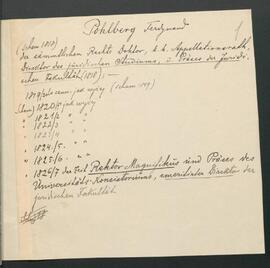 Pohlberg Ferdynand
1
(Schem 1818)
der sämmtlichen Rechte Doktor, k. k. Appellationsrath,
Direktor des juridischen Studiums, u. Präses der juridi-
schen Fakultät (1818); —
1819 jak wyżej (Schem 1819)
Schem) 1820/1 jak wyżej
" 1821/2 "
" 1822/3 "
" 1823/4 "
" 1824/5. "
" 1825/6. "
" 1826/7 der Zeit Rektor Magnifikus und Präses des
Universitäts-Konsistoriums, emeritirter Direktor der
juridischen Fakultät